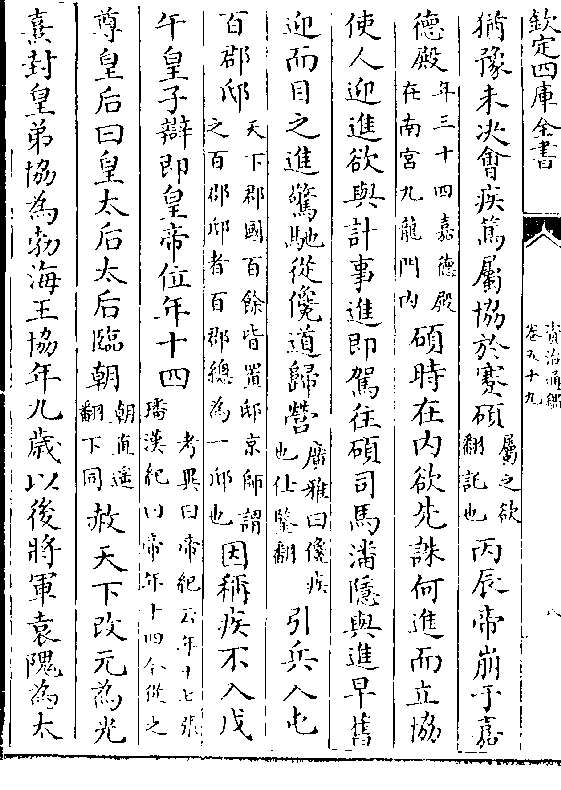 欽定四庫全書
資治通鑑
卷五十九
八
猶豫未決會疾篤屬協於蹇碩屬之欲翻託也丙辰帝崩于嘉
德殿年三十四嘉德殿在南宮九龍門内碩時在内欲先誅何進而立協
使人迎進欲與計事進即駕往碩司馬潘隱與進早舊
迎而目之進驚馳從儳道歸營廣雅曰儳疾也仕鑒翻引兵入屯
百郡邸天下郡國百餘皆置邸京師謂之百郡邸者百郡總為一邸也因稱疾不入戊
午皇子辯即皇帝位年十四考異曰帝紀云年十七張璠漢紀曰帝年十四今從之
尊皇后曰皇太后太后臨朝朝直遥翻下同赦天下改元為光
熹封皇弟協為勃海王協年九歲以後將軍袁隗為太